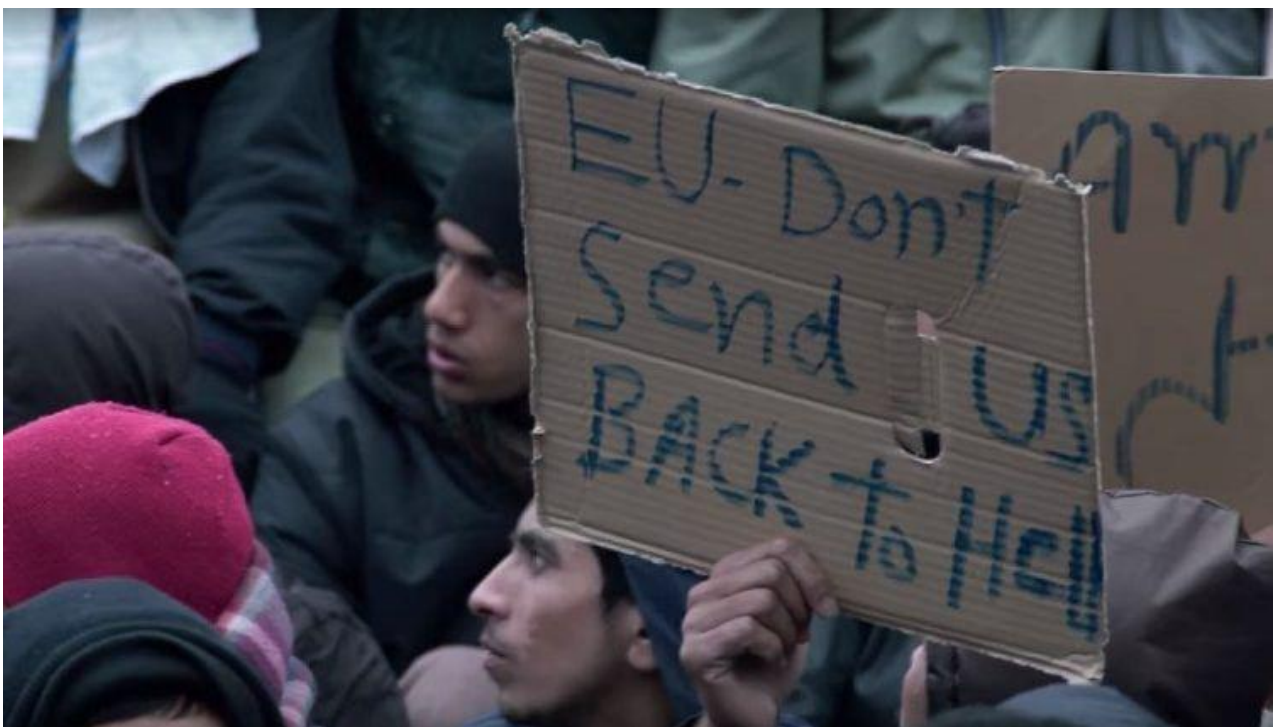 EU- Don't
Send Us
BACK to Hell